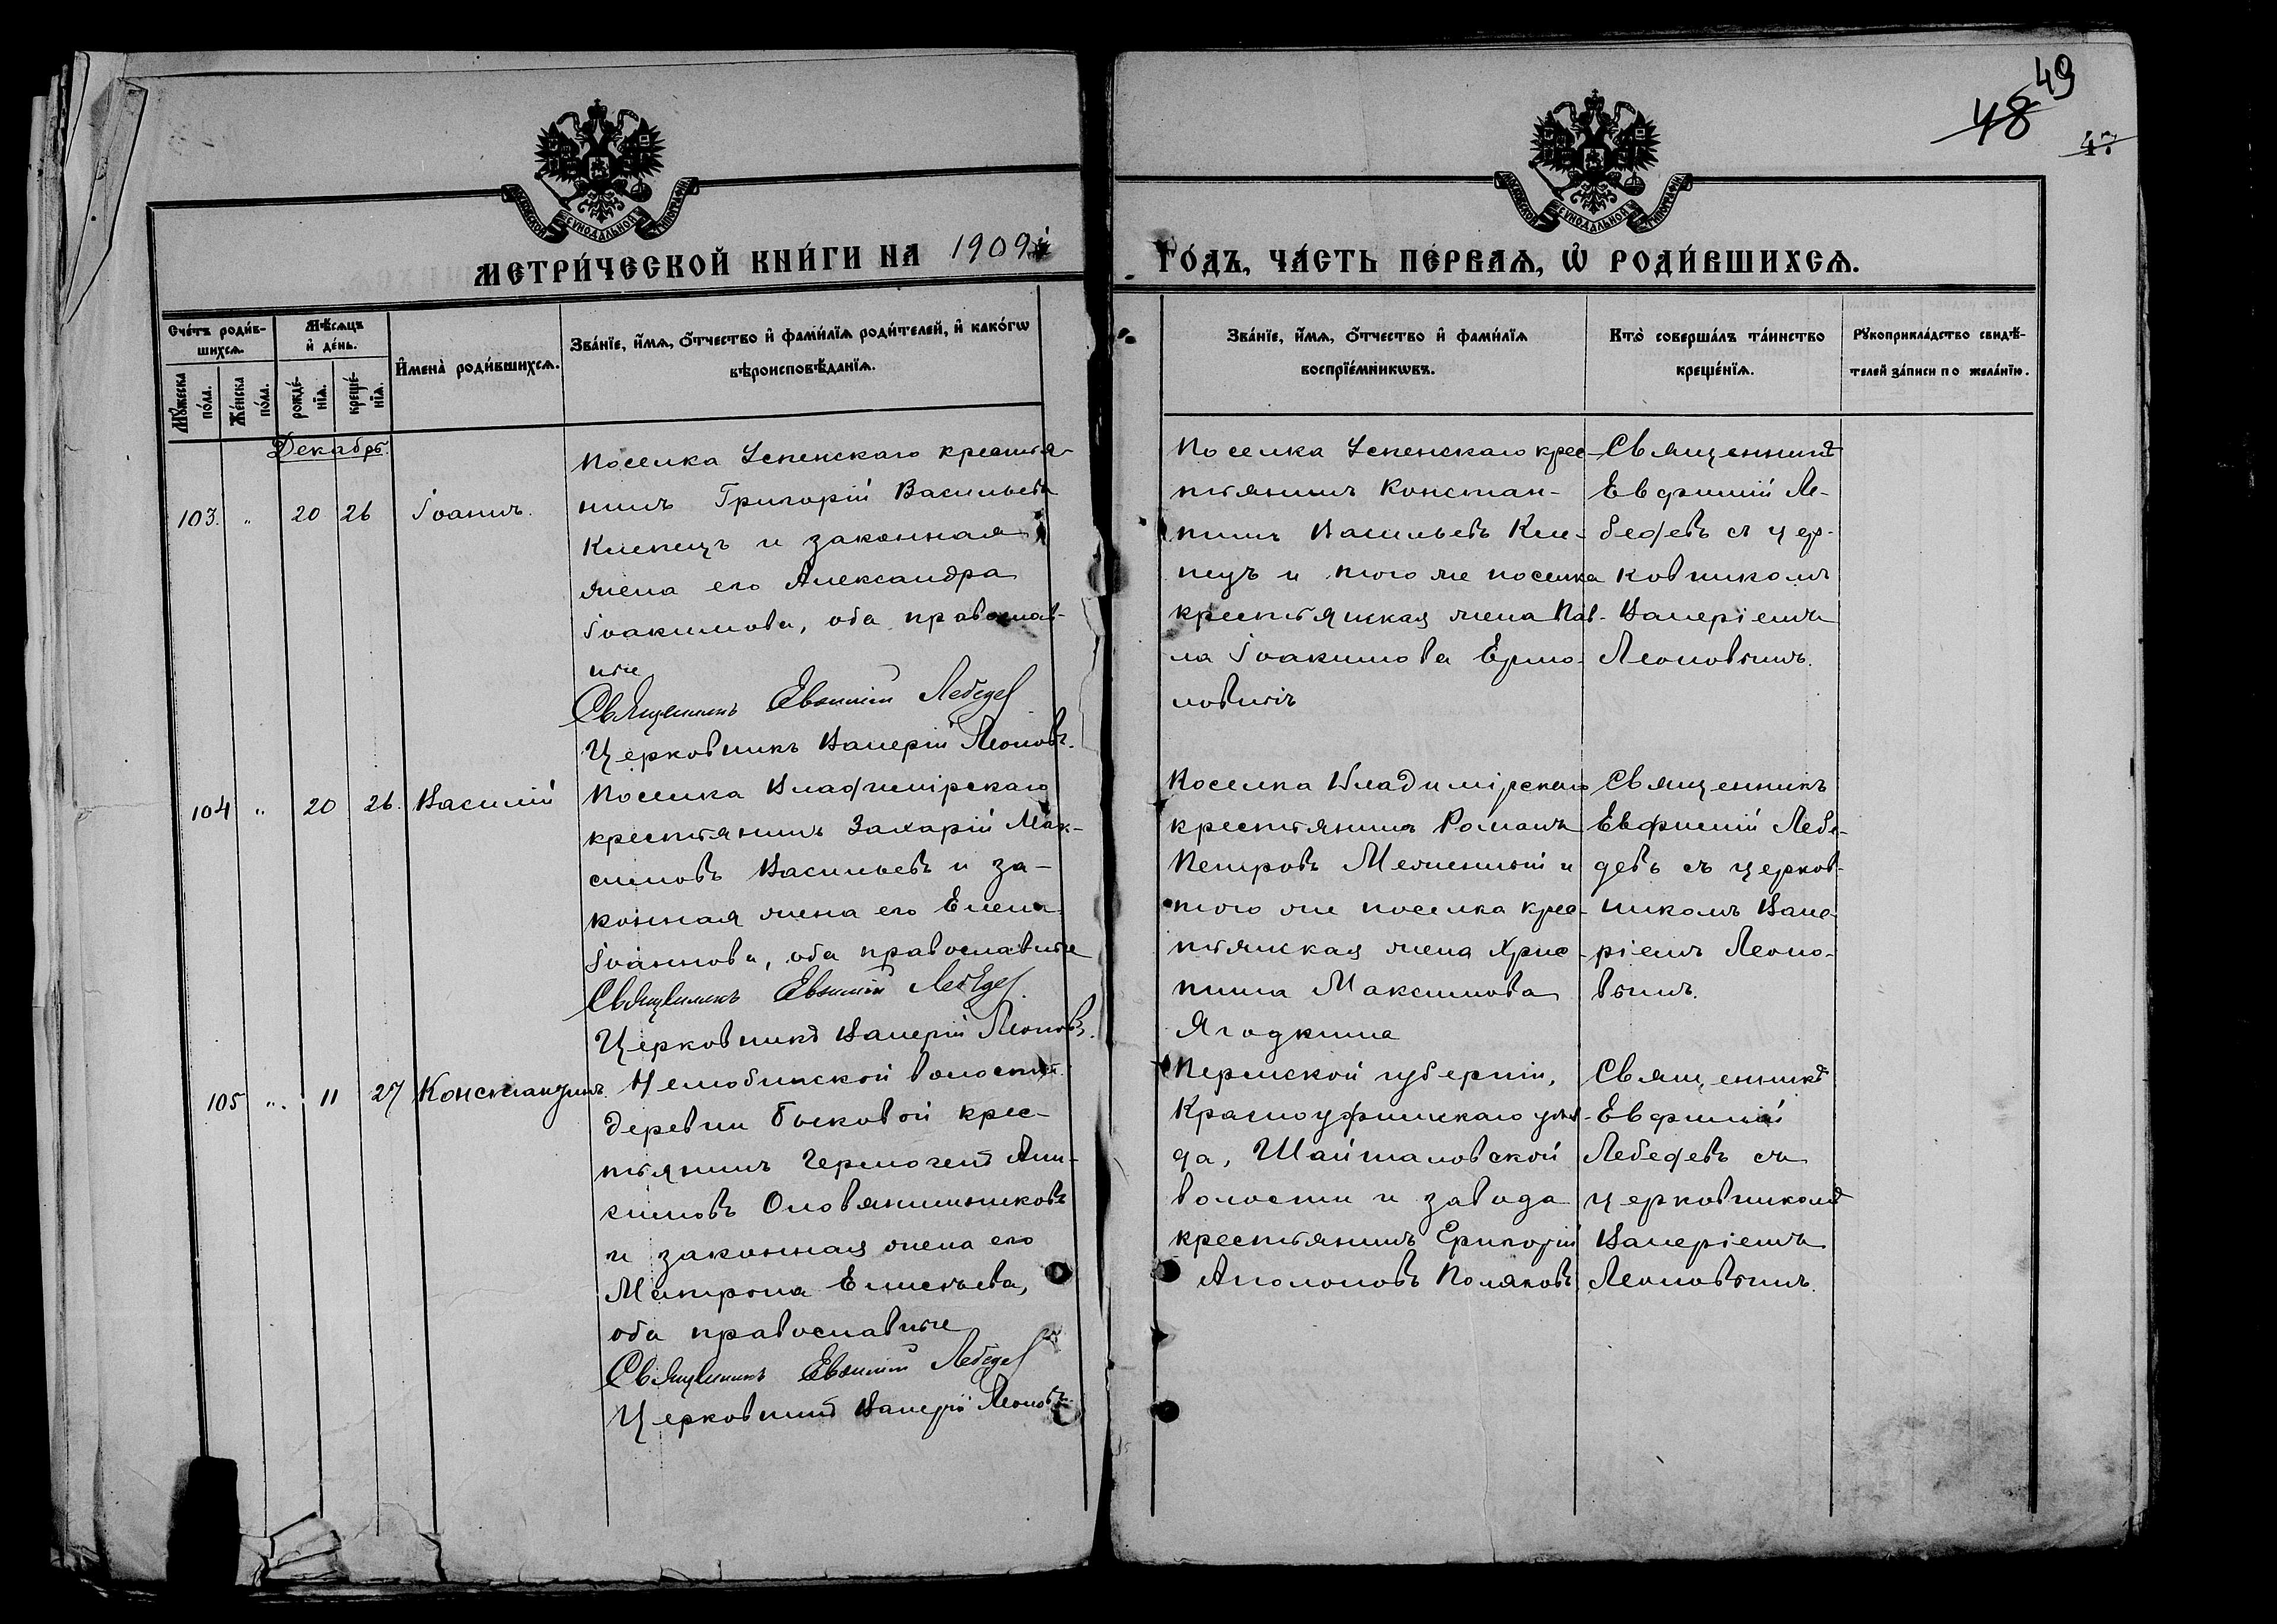 49
48
47
МОСКОВСКОЙ СѴНОДАЛЬНОЙ ТИПОГРАФІИ
МОСКОВСКОЙ СѴНОДАЛЬНОЙ ТИПОГРАФІИ
МЕТРИ́ЧЕСКОЙ КНИ́ГИ НА 1909й
ГО́ДЪ, ЧА́СТЬ ПЕ́РВАѦ, Ѽ РОДИ́ВШИХСѦ.
Сче́тъ роди́в-
шихсѧ.
Мѣ́сѧцъ
и҆ де́нь.
Мꙋ́жеска
по́ла.
Же́нска
по́ла.
рожде́-
нїѧ.
креще́-
нїѧ.
И҆мена̀ роди́вшихсѧ.
Зва́нїе, и҆́мѧ, ѻ҆́тчество и҆ фами́лїѧ роди́телей, и҆ како́гѡ
вѣроисповѣ́данїѧ.
Зва́нїе, и҆́мѧ, ѻ҆́тчество и҆ фами́лїѧ
воспрїе́мникѡвъ.
Кто̀ соверша́лъ та́инство
креще́нїѧ.
Рꙋкоприкла́дство свидѣ́-
телей за́писи по жела́нїю.
Декабрь.
103. " 20 26 Іоаннъ.
Поселка Успенскаго крестья-
нинъ Григорій Васильевъ
Клепецъ и законная
жена его Александра
Іоакимова, оба православ-
ные
Священникъ Евѳимій Лебедев
Церковникъ Валерій Леоновъ.
Поселка Успенскаго крес-
тьянинъ Констан-
тинъ Васильевъ Кле-
пецъ и того же поселка
крестьянская жена Пав-
ла Іоакимова Ермо-
ловичъ
Священникъ
Евфимій Ле-
бедевъ съ цер-
ковникомъ
Валеріемъ
Леоновымъ.
104 " 20 26. Василій
Поселка Владимірскаго
крестьянинъ Захарій Мак-
симовъ Васильевъ и за-
конная жена его Елена
Іоаннова, оба православные
Священникъ Евѳимій Лебедев
Церковникъ Валерій Леоновъ.
Поселка Владимірскаго
крестьянинъ Романъ
Петровъ и
того же поселка крес-
тьянская жена Хрис-
тина Максимова
Ягодкина
Священникъ
Евфимій Лебе-
девъ съ церков-
никомъ Вале-
ріемъ Леоно-
вымъ.
105 " 11 27 Константинъ.
Нелюбинской волости
деревни Быковой крес-
тьянинъ Гермогенъ Ани-
симовъ Оловянишниковъ
и законная жена его
Матрона Елисѣева,
оба православные
Священникъ Евѳимій Лебедев
Церковникъ Валерій Леоновъ
Пермской губерніи,
Красноуфимскаго уѣз-
да, Шайтановской
волости и завода
крестьянинъ Григорій
Аполоновъ Поляковъ.
Священникъ
Евфимій
Лебедевъ съ
церковникомъ
Валеріемъ
Леоновымъ.